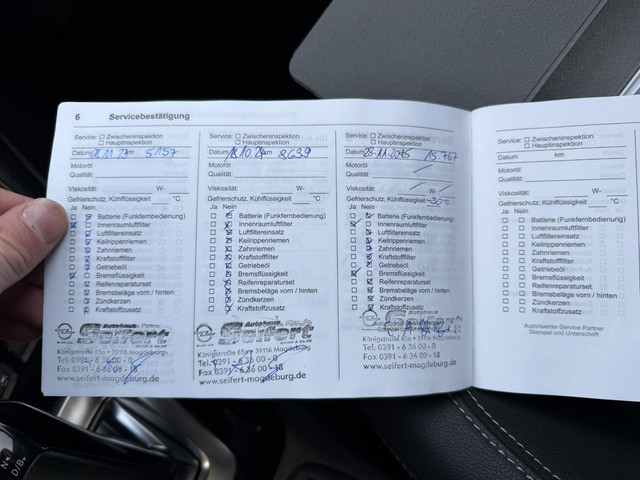 6 Servicebestätigung
Service: Zwischeninspektion
Hauptinspektion
Datum 08.11.23 km 5157
Motoröl
Qualität:
Viskosität: W-
Gefrierschutz, Kühlflüssigkeit °C
Ja Nein
Batterie (Funkfernbedienung)
Innenraumluftfilter
Luftfiltereinsatz
Keilrippenriemen
Zahnriemen
Kraftstofffilter
Getriebeöl
Bremsflüssigkeit
Reifenreparaturset
Bremsbeläge vorn / hinten
Zündkerzen
Kraftstoffzusatz
Autohaus Partner
Seifert
Königstraße 65a • 39116 Magdeburg
Tel. 0391 - 6 36 00 - 0
Fax 0391 - 6 36 00 - 18
www.seifert-magdeburg.de
Service: Zwischeninspektion
Hauptinspektion
Datum 18.10.24 km 8639
Motoröl
Qualität:
Viskosität: W-
Gefrierschutz, Kühlflüssigkeit °C
Ja Nein
Batterie (Funkfernbedienung)
Innenraumluftfilter
Luftfiltereinsatz
Keilrippenriemen
Zahnriemen
Kraftstofffilter
Getriebeöl
Bremsflüssigkeit
Reifenreparaturset
Bremsbeläge vorn / hinten
Zündkerzen
Kraftstoffzusatz
Autohaus Partner
Seifert
Königstraße 65a • 39116 Magdeburg
Tel. 0391 - 6 36 00 - 0
Fax 0391 - 6 36 00 - 18
www.seifert-magdeburg.de
Service: Zwischeninspektion
Hauptinspektion
Datum 28.11.2025 15.767
Motoröl
Qualität:
Viskosität: W-
Gefrierschutz, Kühlflüssigkeit -30 °C
Ja Nein
Batterie (Funkfernbedienung)
Innenraumluftfilter
Luftfiltereinsatz
Keilrippenriemen
Zahnriemen
Kraftstofffilter
Getriebeöl
Bremsflüssigkeit
Reifenreparaturset
Bremsbeläge vorn / hinten
Zündkerzen
Kraftstoffzusatz
Autohaus
Seifert
Königstraße 65a • 39116 Magdeburg
Tel. 0391 - 6 36 00 - 0
Fax 0391 - 6 36 00 - 18
www.seifert-magdeburg.de
Service: Zwischeninspektion
Hauptinspektion
Datum km
Motoröl
Qualität:
Viskosität: W-
Gefrierschutz, Kühlflüssigkeit °C
Ja Nein
Batterie (Funkfernbedienung)
Innenraumluftfilter
Luftfiltereinsatz
Keilrippenriemen
Zahnriemen
Kraftstofffilter
Getriebeöl
Bremsflüssigkeit
Reifenreparaturset
Bremsbeläge vorn / hinten
Zündkerzen
Kraftstoffzusatz
Autorisierter Service Partner
Stempel und Unterschrift
N
D/B